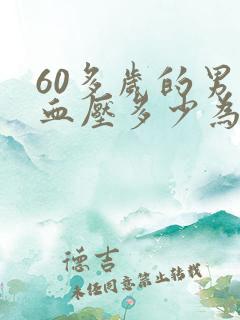 60多岁的男
血壓多少為
德吉
未经同意禁止转载